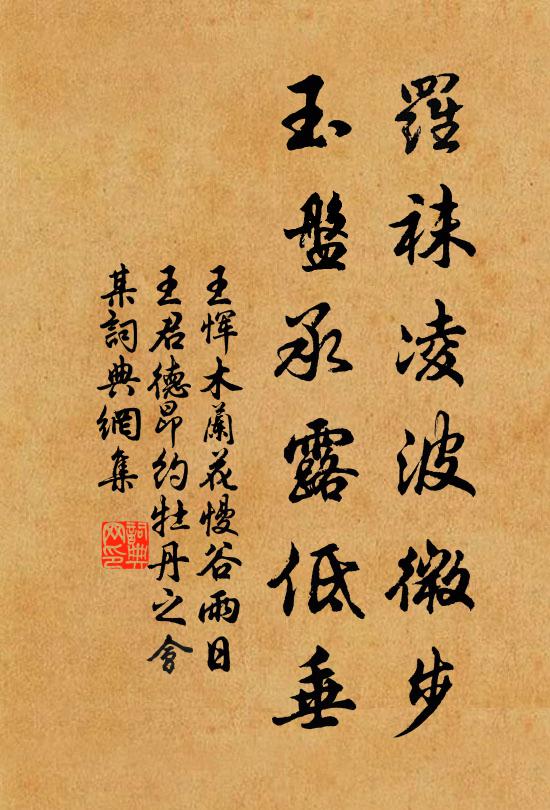 羅袜凌波微步
玉盤承露低垂
王惲木蘭花慢谷雨日
王君德昂約牡丹之會
某詞典網集
詞典
网印